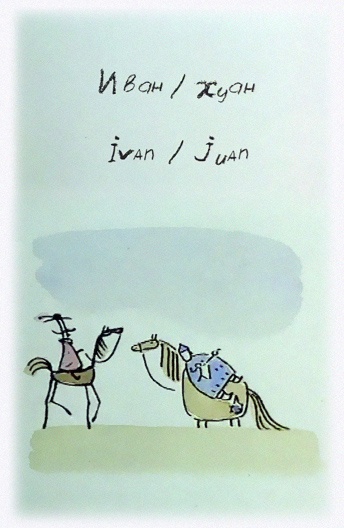 Иван / хуан
ivan / juan